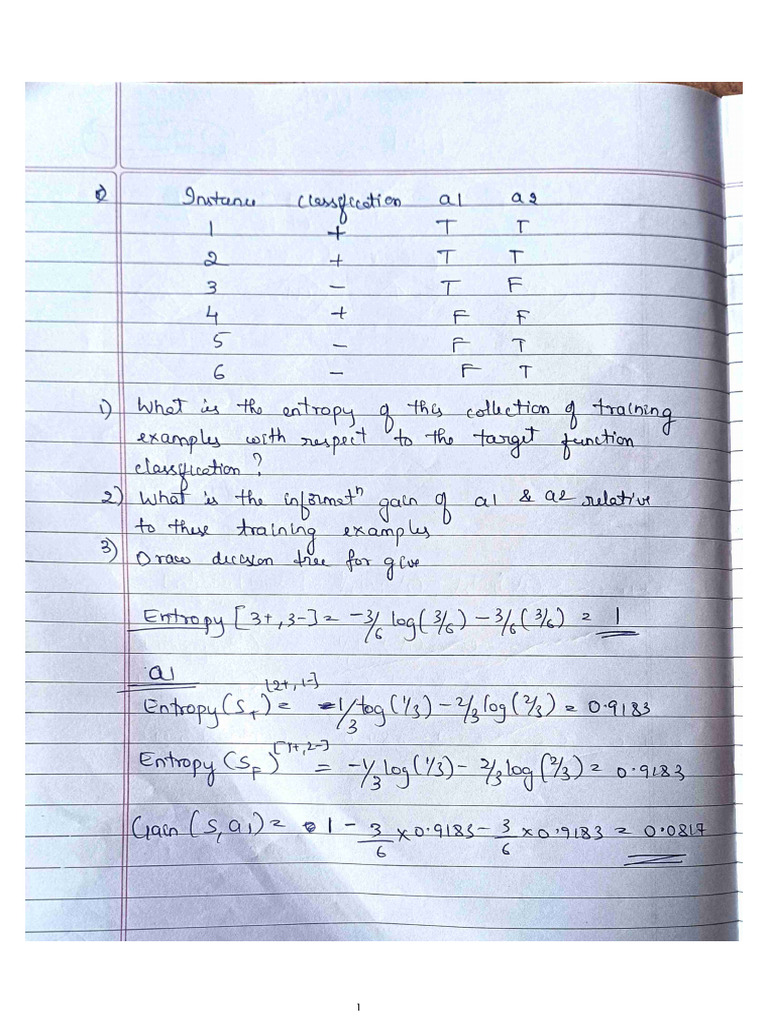 Q Instance classification a1 a2
1 + T T
2 + T T
3 - T F
4 + F F
5 - F T
6 - F T
1) What is the entropy of this collection of training
examples with respect to the target function
classification?
2) What is the informatⁿ gain of a1 & a2 relative
to these training examples
3) Draw decision tree for give
Entropy [3+, 3-] = -3/6 log(3/6) - 3/6 (3/6) = 1
a1
Entropy (S_T) [2+, 1-] = -1/3 log(1/3) - 2/3 log(2/3) = 0.9183
Entropy (S_F) [1+, 2-] = -1/3 log(1/3) - 2/3 log(2/3) = 0.9183
Gain (S, a1) = 1 - 3/6 × 0.9183 - 3/6 × 0.9183 = 0.0817
1